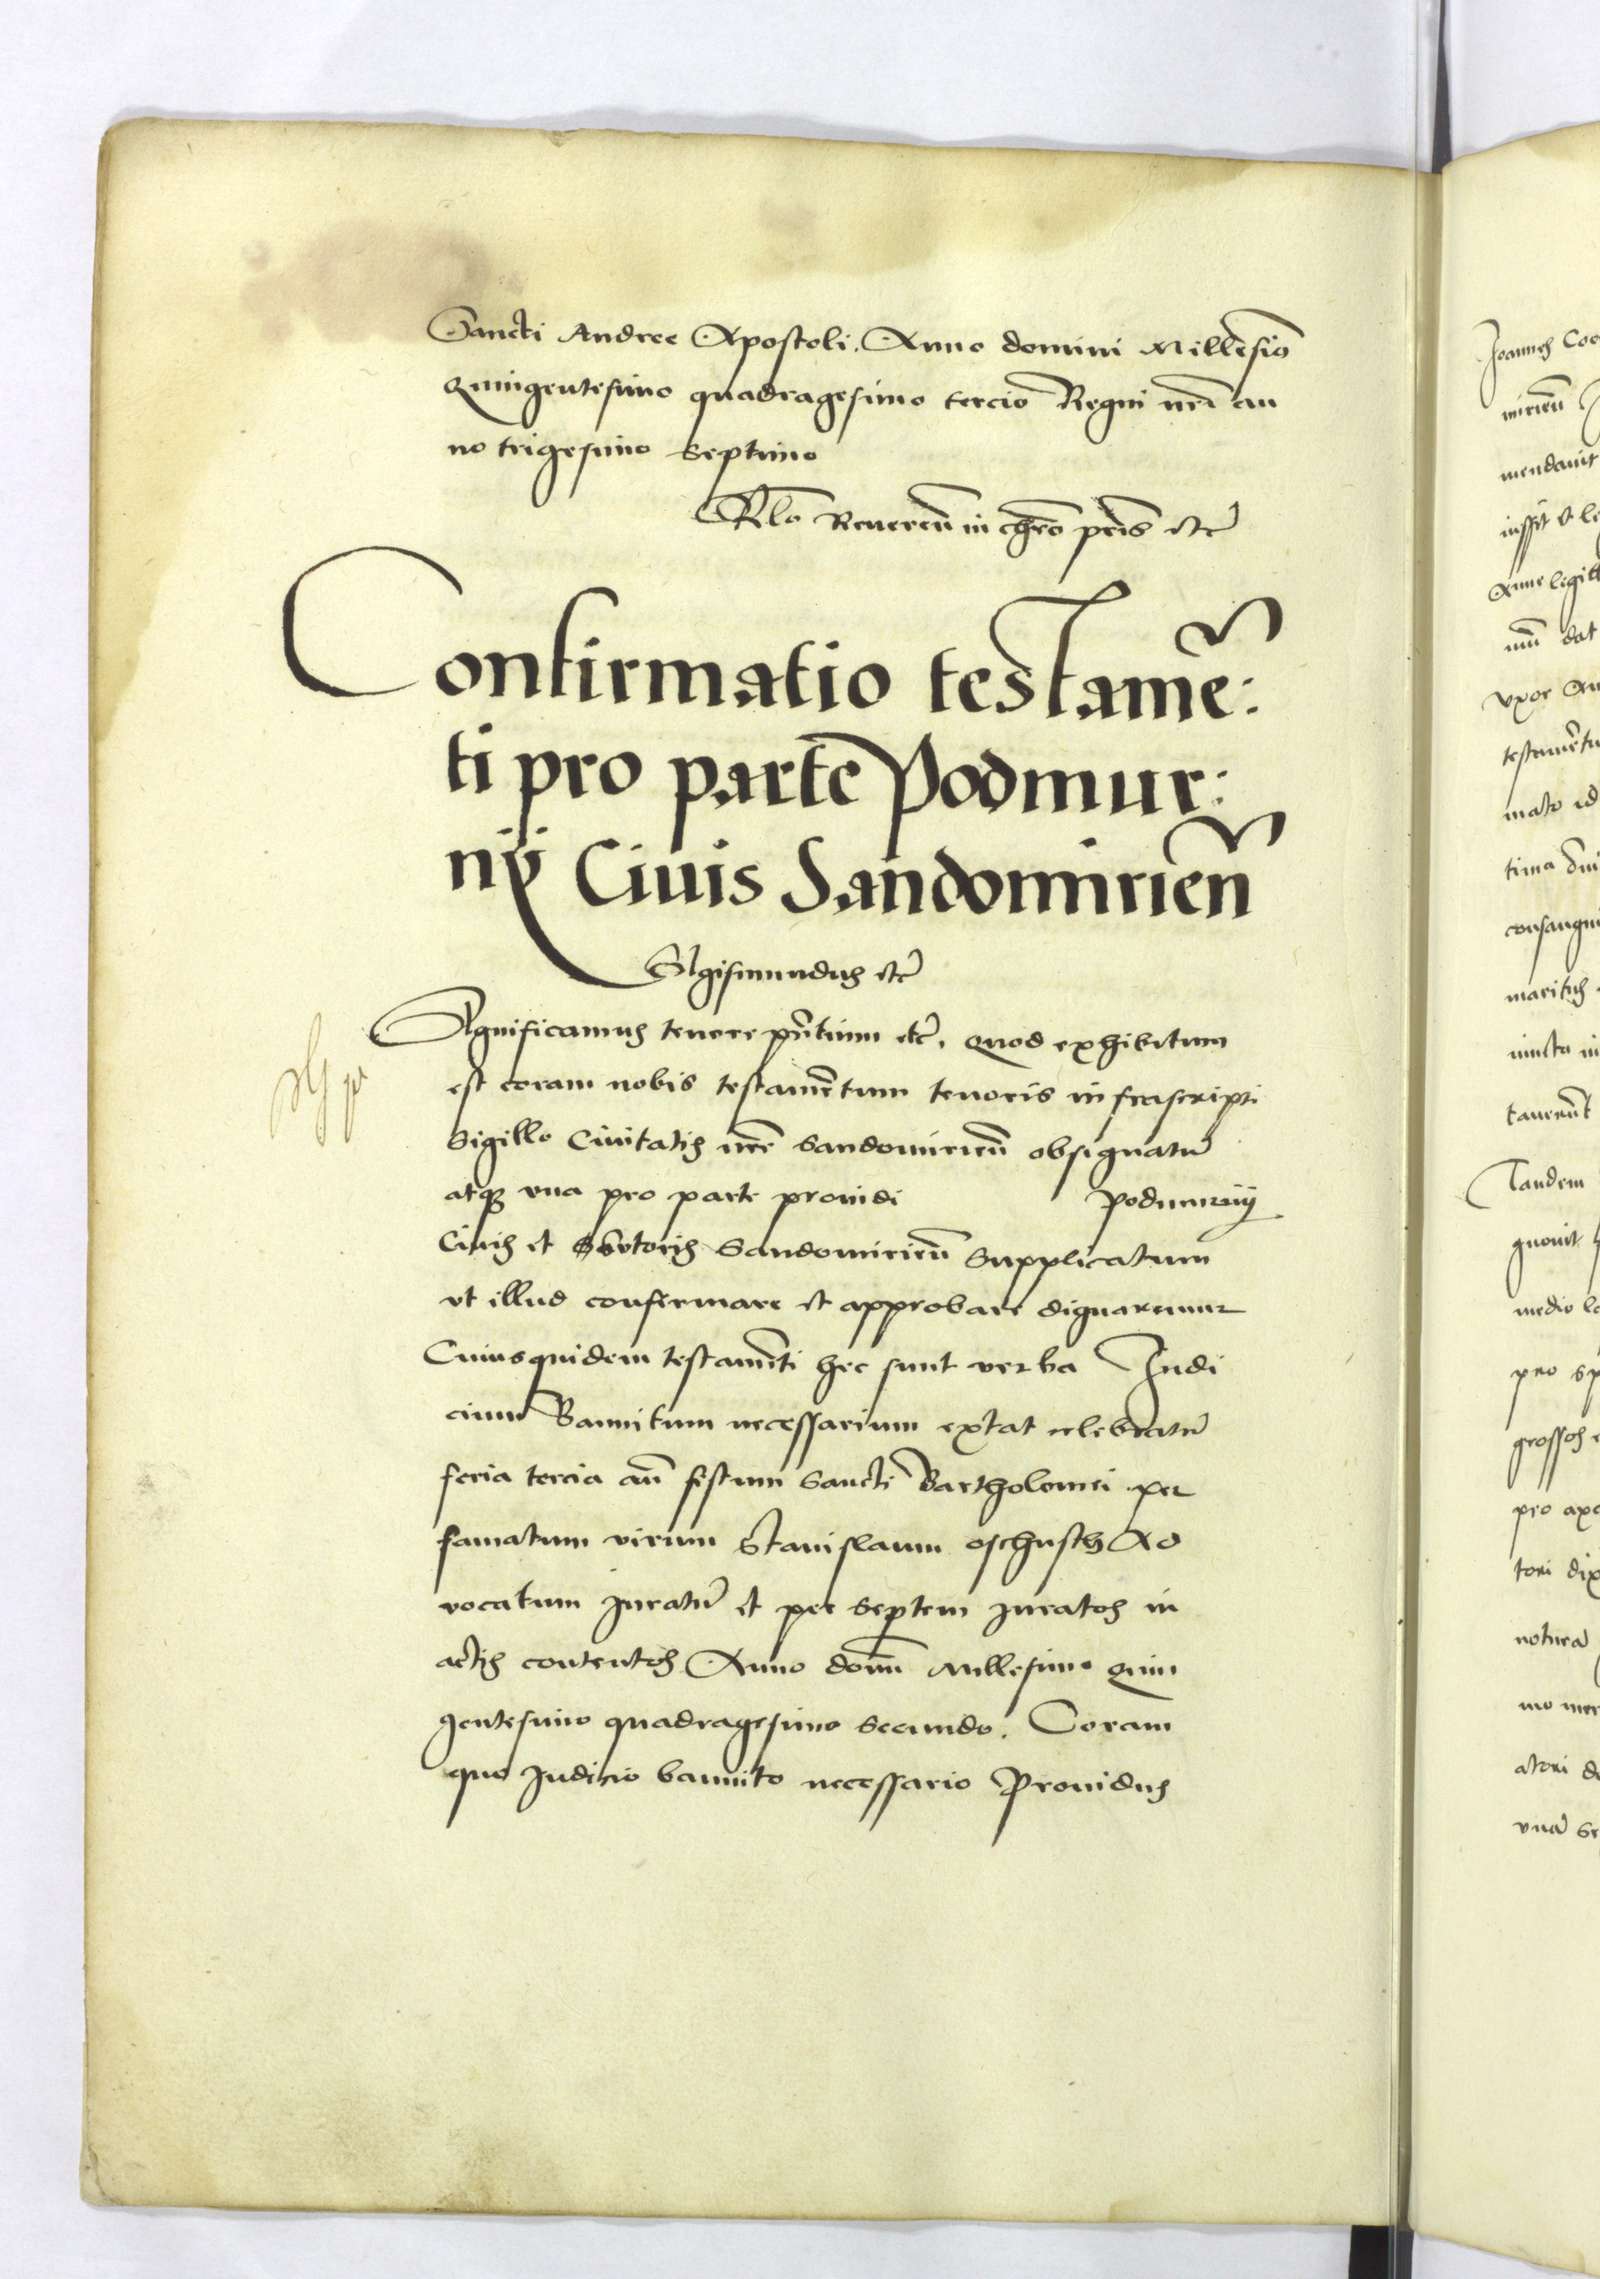 Sancti Andree Apostoli. Anno domini Millesi͂o
Quingentesimo quadragesimo tercio Regni nr͂i an
no trigesimo septimo
Rl͂o Reueren͂ in chr͂o pr͂is etc͂
Confirmatio testame͂:
ti pro parte Podmur:
nÿ Ciuis Sandomirien͂
Sigismundus etc͂
Significamus tenore pn͂tium etc͂. Quod exhibitum
est coram nobis testamen͂tum tenoris infrascripti
Sigillo Ciuitatis nr͂e Sandomirien͂ obsignatu͂
atq3 una pro parte prouidi Podmurnÿ
Ciuis et Sutoris Sandomirien͂ supplicatum
vt illud confirmare et approbare dignaremur
Cuiusquidem testame͂ti hec sunt verba Iudi
cium Bannitum necessarium extat celebratu͂
feria tercia an͂ festum Sancti Bartholomei per
famatum virum Stanislaum oschusth Ad
vocatum Iuratu͂ et per septem Iuratos in
actis contentos Anno dom͂ Millesimo Quin
gentesimo quadragesimo secundo. Coram
quo Iudicio bannito necessario Prouidus
Joannes
mendauit
Anne
dat
vxor
mato
tima
maritus
Tandem
gnouit
medio
pro
grossos
pro
tori